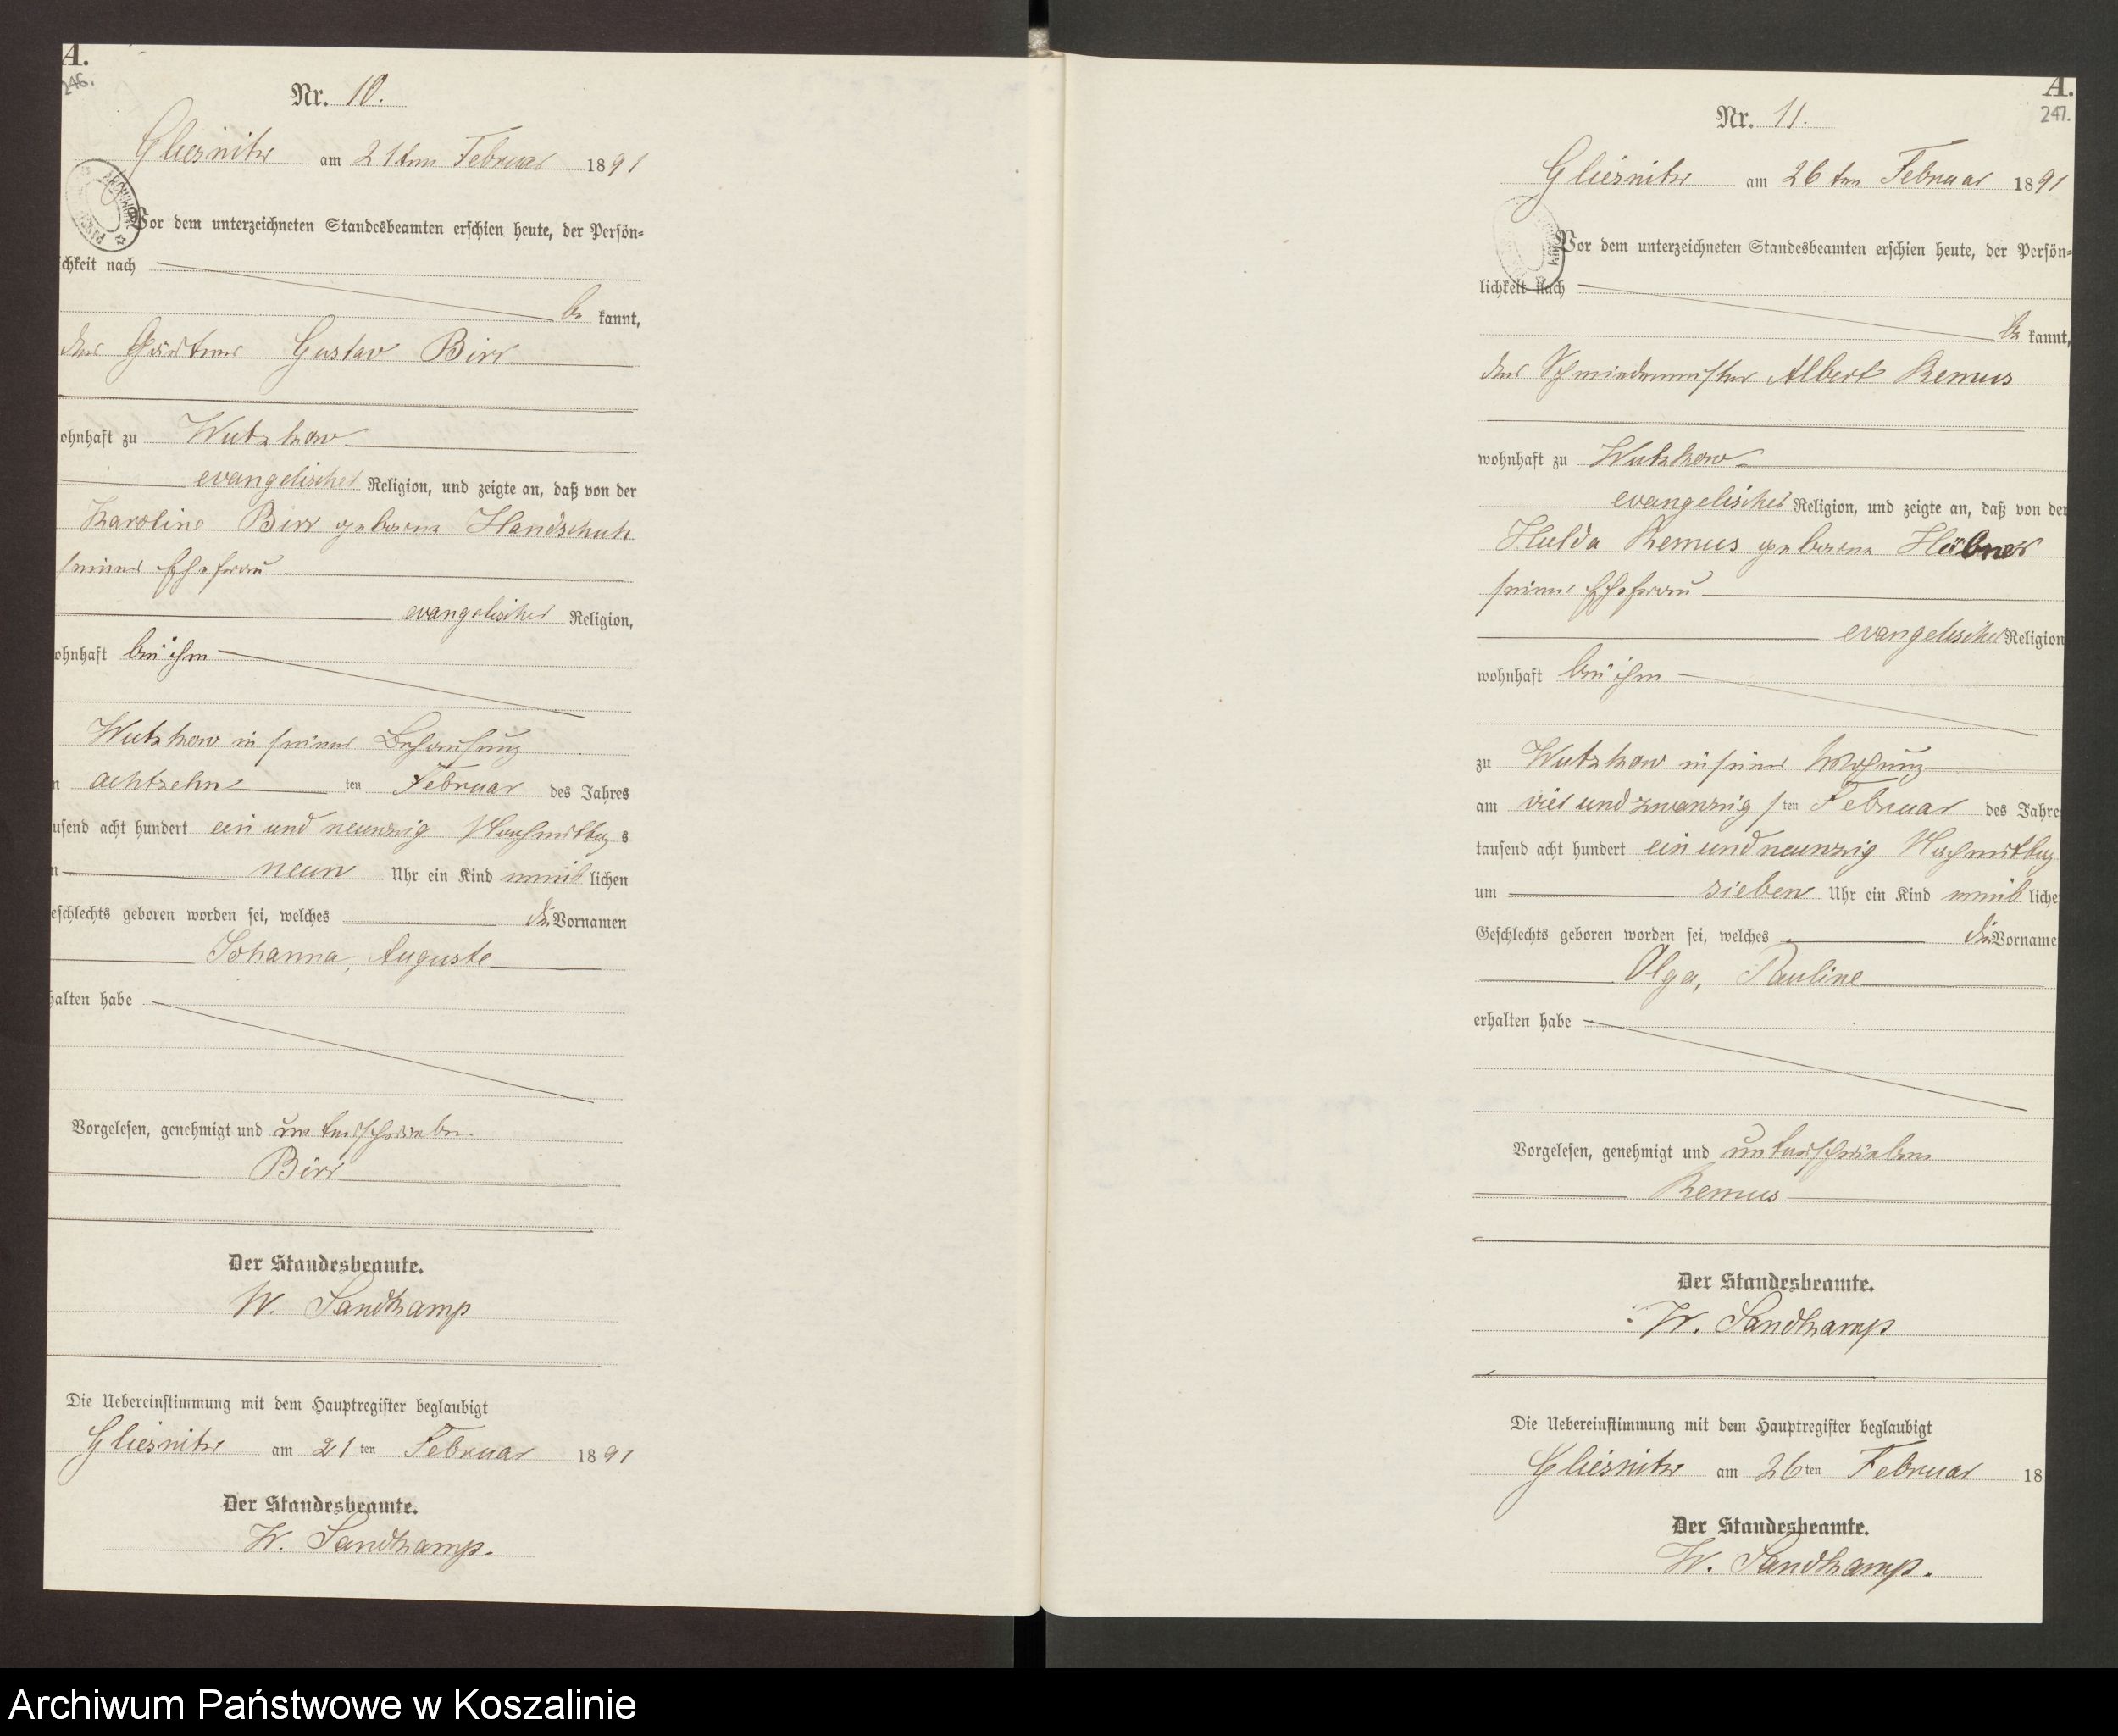 A.
246.
Nr. 10.
Gliesnitz am 21ten Februar 1891
Vor dem unterzeichneten Standesbeamten erschien heute, der Persön-
ichkeit nach
be kannt,
der Gärtner Gustav Birr
ohnhaft zu Wutzkow
evangelischer Religion, und zeigte an, daß von der
Karoline Birr geborene Handschuh
seiner Ehefrau
evangelischer Religion,
ohnhaft bei ihm
Wutzkow in seiner Behausung
n achtzehn ten Februar des Jahres
usend acht hundert ein und neunzig Nachmittag s
n neun Uhr ein Kind weib lichen
eschlechts geboren worden sei, welches die Vornamen
Johanna, Auguste
halten habe
Vorgelesen, genehmigt und unterschrieben
Birr
Der Standesbeamte.
W. Sandkamp
Die Uebereinstimmung mit dem Hauptregister beglaubigt
Gliesnitz am 21 ten Februar 1891
Der Standesbeamte.
W. Sandkamp.
A.
247.
Nr. 11.
Gliesnitz am 26ten Februar 1891
Vor dem unterzeichneten Standesbeamten erschien heute, der Persön-
lichkeit nach
be kannt,
der Schmiedemeister Albert Remus
wohnhaft zu Wutzkow
evangelischer Religion, und zeigte an, daß von der
Hulda Remus geborene Hübner
seiner Ehefrau
evangelischer Religion
wohnhaft bei ihm
zu Wutzkow in seiner Wohnung
am vier und zwanzig s ten Februar des Jahre
tausend acht hundert ein und neunzig Nachmittag
um sieben Uhr ein Kind weib liche
Geschlechts geboren worden sei, welches die Vorname
Olga, Pauline
erhalten habe
Vorgelesen, genehmigt und unterschrieben
Remus
Der Standesbeamte.
W. Sandkamp
Die Uebereinstimmung mit dem Hauptregister beglaubigt
Gliesnitz am 26 ten Februar 18
Der Standesbeamte.
W. Sandkamp.
Archiwum Państwowe w Koszalinie